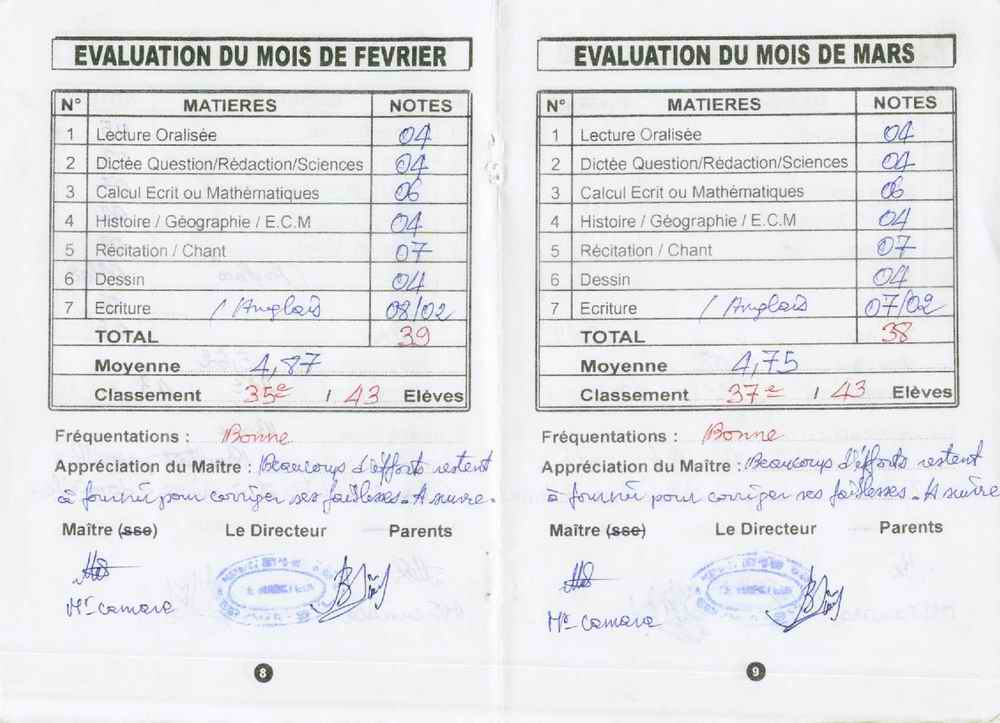 EVALUATION DU MOIS DE FEVRIER
N° MATIERES NOTES
1 Lecture Oralisée 04
2 Dictée Question/Rédaction/Sciences 04
3 Calcul Ecrit ou Mathématiques 06
4 Histoire / Géographie / E.C.M 04
5 Récitation / Chant 07
6 Dessin 04
7 Ecriture / Anglais 08/02
TOTAL 39
Moyenne 4,87
Classement 35e / 43 Elèves
Fréquentations : Bonne
Appréciation du Maître : Beaucoups d'éfforts restent
à fournir pour corriger ses faiblesses - A suivre.
Maître (sse) Le Directeur Parents
Mr camara
8
EVALUATION DU MOIS DE MARS
N° MATIERES NOTES
1 Lecture Oralisée 04
2 Dictée Question/Rédaction/Sciences 04
3 Calcul Ecrit ou Mathématiques 06
4 Histoire / Géographie / E.C.M 04
5 Récitation / Chant 07
6 Dessin 04
7 Ecriture / Anglais 07/02
TOTAL 38
Moyenne 4,75
Classement 37e / 43 Elèves
Fréquentations : Bonne
Appréciation du Maître : Beaucoups d'éfforts restent
à fournir pour corriger ses faiblesses - A suivre
Maître (sse) Le Directeur Parents
Mr camara
9